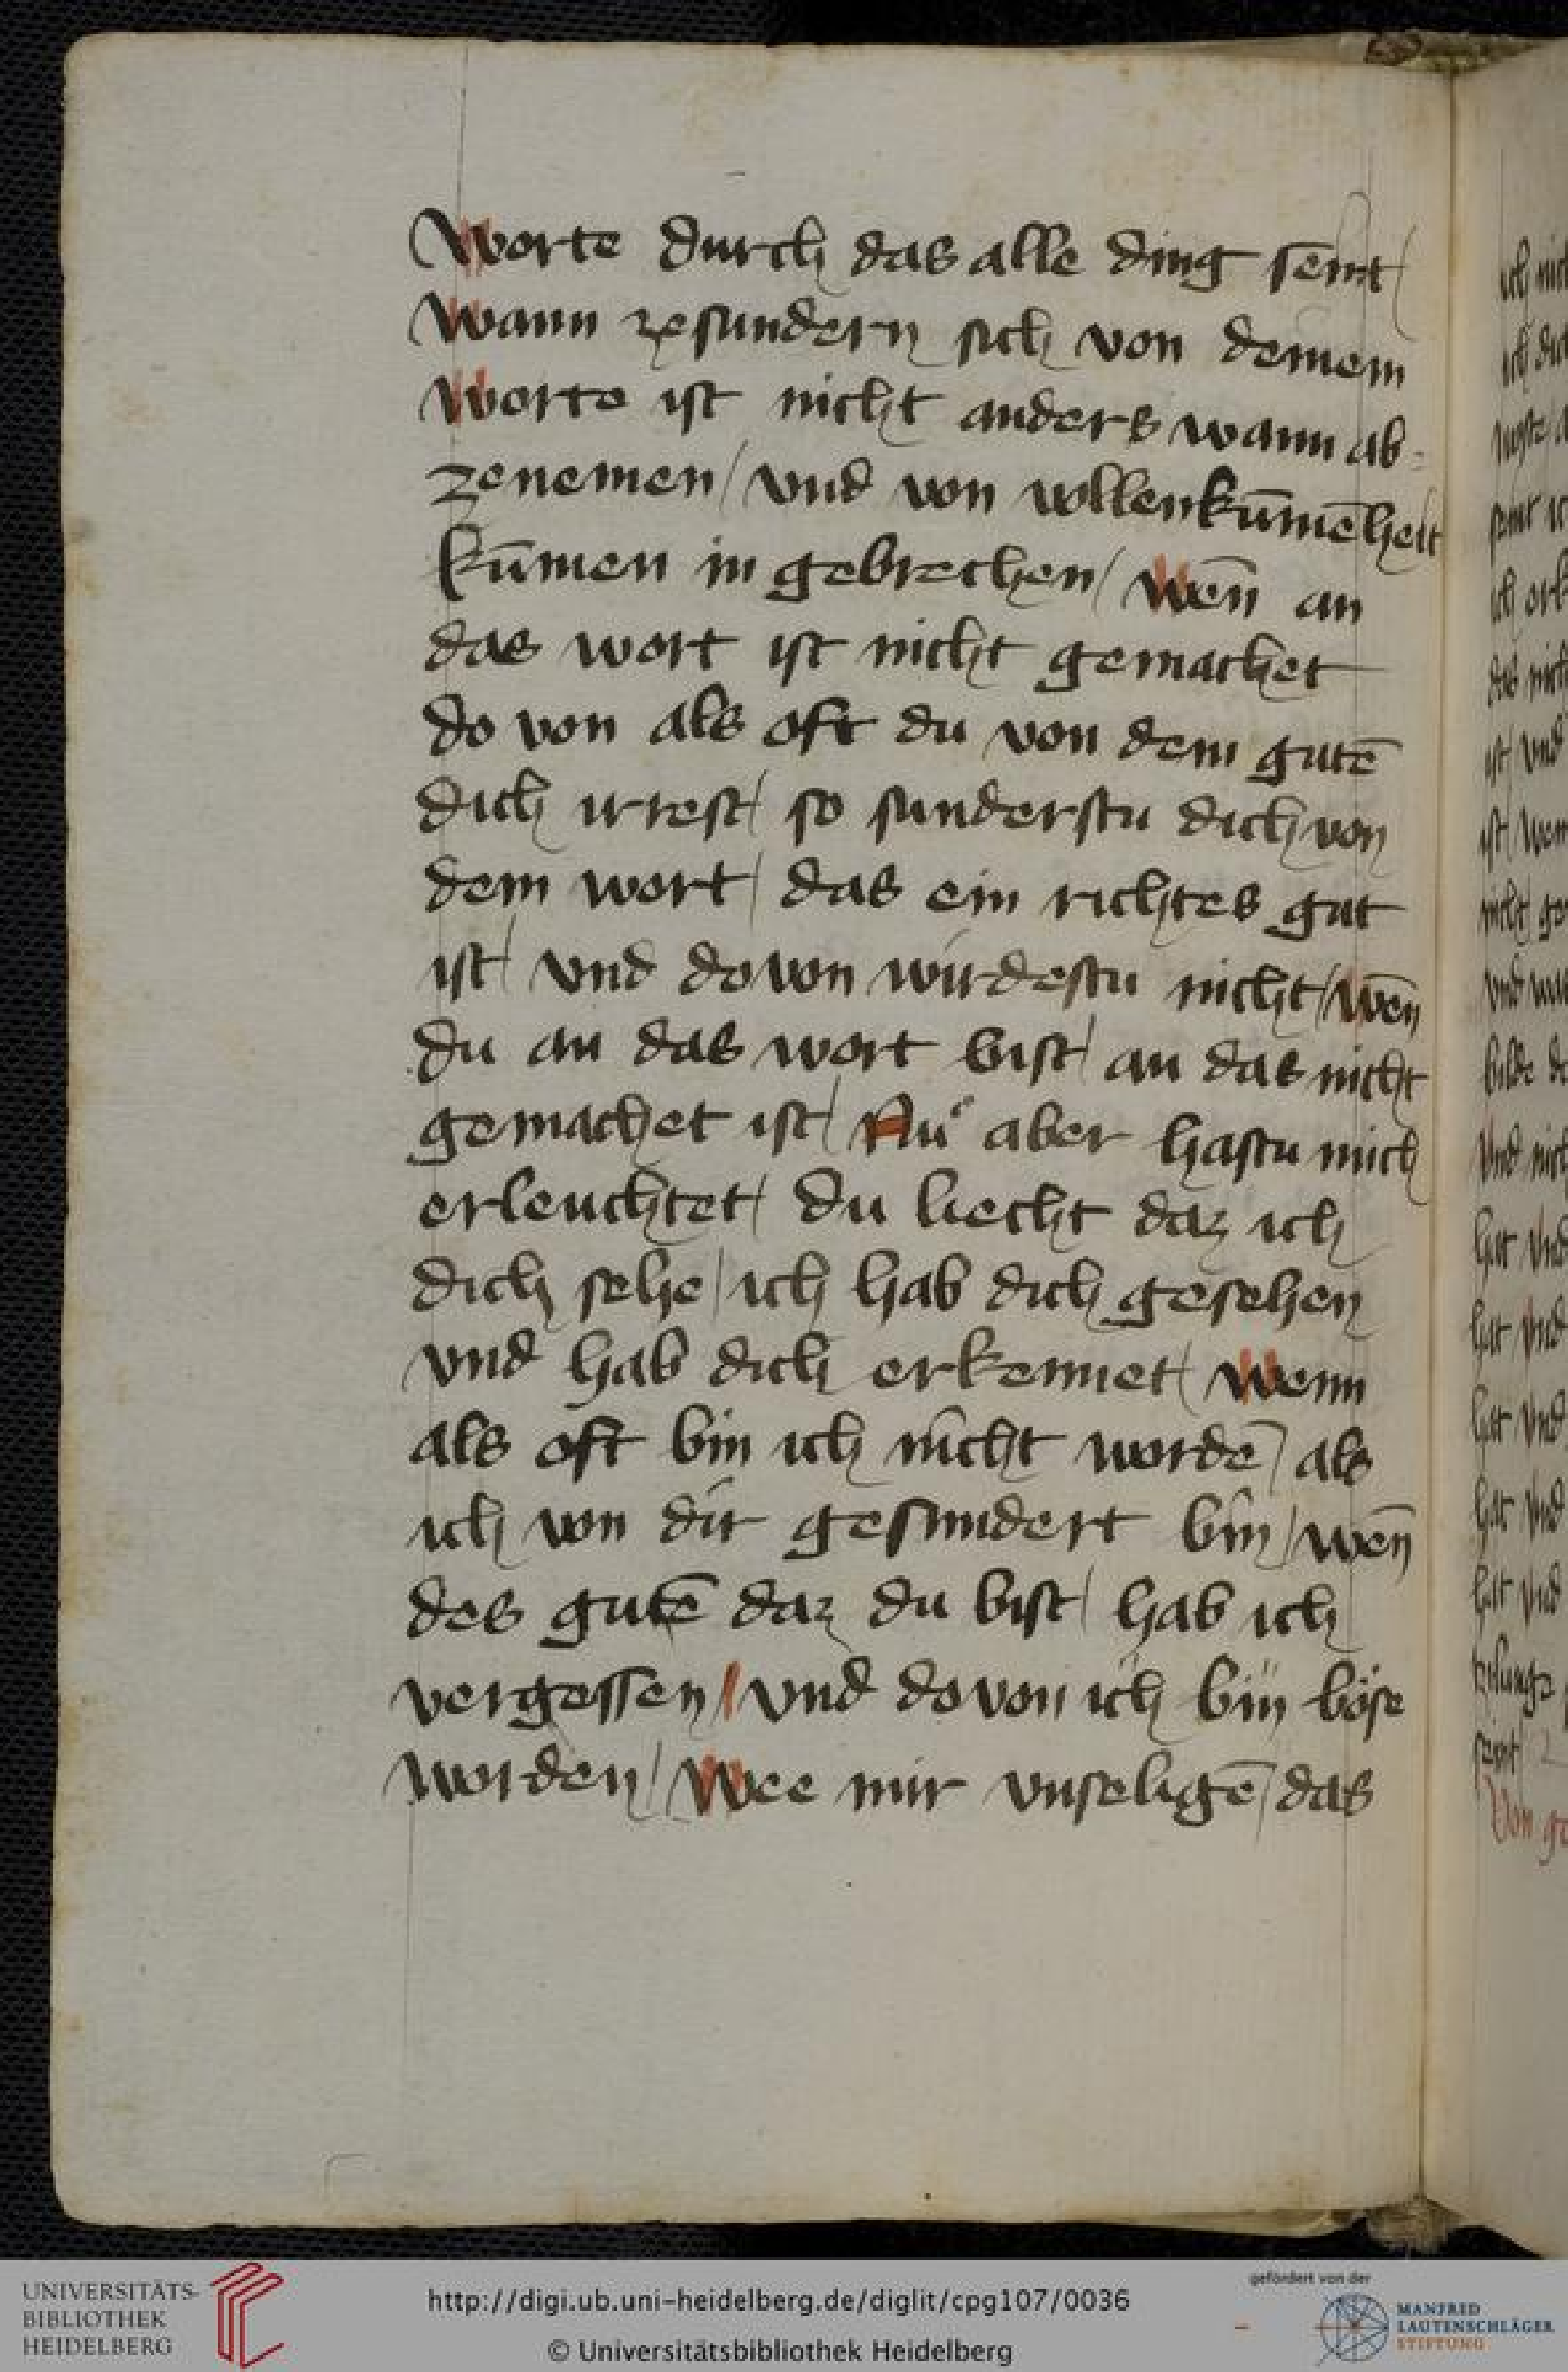 Worte durch das alle ding seint /
Wann ze sundern sich von deinem
Worte ist nicht anders wann ab-
zenemen / vnd von vollenkūmēheit
kūmen in gebrechen / Wēn an
das wort ist nicht gemachet
do von als oft du von dem gutē
dich irrest / so sunderstu dich von
dem wort / das ein richtes gut
ist / vnd do von wirdestu nicht / wēn
du an das wort bist / an das nicht
gemachet ist / Nuͦ aber hastu mich
erleuchtet / du liecht daz ich
dich sehe / ich hab dich gesehen
vnd hab dich erkennet / Wenn
als oft bin ich nicht wordē / als
ich von dir gesundert bin / wēn
des gutē daz du bist / hab ich
vergessen / vnd do von ich bin böse
worden / Wee mir vnseligē / das
UNIVERSITÄTS-
BIBLIOTHEK
HEIDELBERG
http://digi.ub.uni-heidelberg.de/diglit/cpg107/0036
© Universitätsbibliothek Heidelberg
gefördert von der
MANFRED
LAUTENSCHLÄGER
STIFTUNG